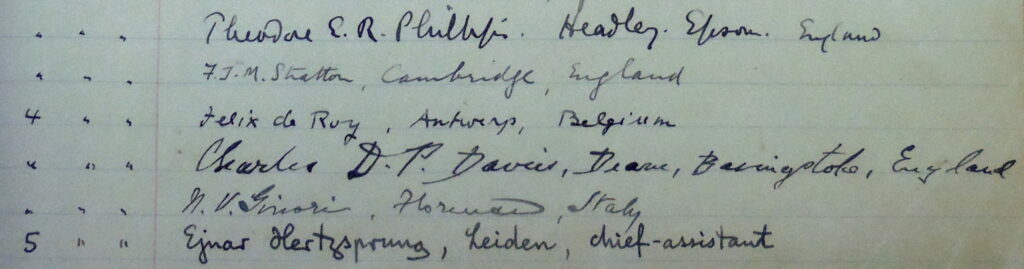 " " " Theodore E. R. Phillips. Headley. Epsom. England
" " " F.J.M. Stratton, Cambridge, England
4 " " Felix de Roy, Antwerp, Belgium
" " " Charles D. P. Davies, Deane, Basingstoke, England
" " " N. V. Ginori, Florence, Italy
5 " " Ejnar Hertzsprung, Leiden, chief-assistant